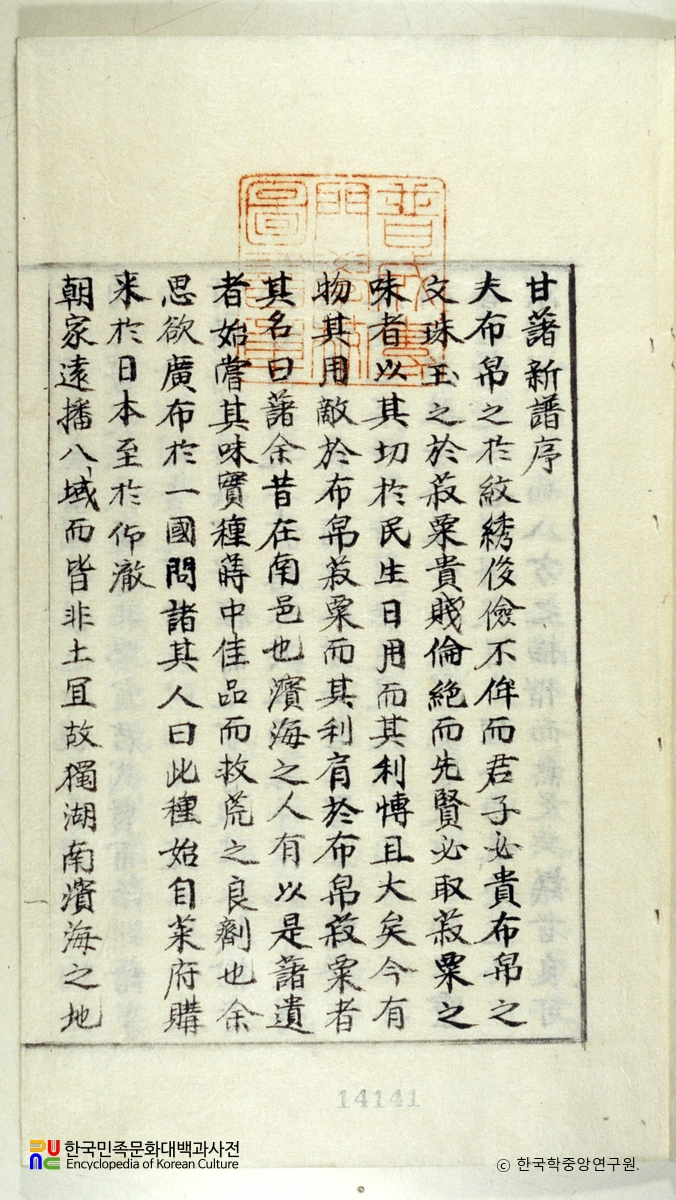 甘藷新譜序
夫布帛之於紋綉俊儉不侔而君子必貴布帛之
文珠玉之於菽粟貴賤倫絶而先賢必取菽粟之
味者以其切於民生日用而其利博且大矣今有
物其用敵於布帛菽粟而其利有於布帛菽粟者
其名曰藷余昔在南邑也濱海之人有以是藷遺
者始嘗其味實種蒔中佳品而救荒之良劑也余
思欲廣布於一國問諸其人曰此種始自萊府購
来於日本至於仰澈
朝家遠播八域而皆非土冝故獨湖南濱海之地
14141
한국민족문화대백과사전
Encyclopedia of Korean Culture
© 한국학중앙연구원.